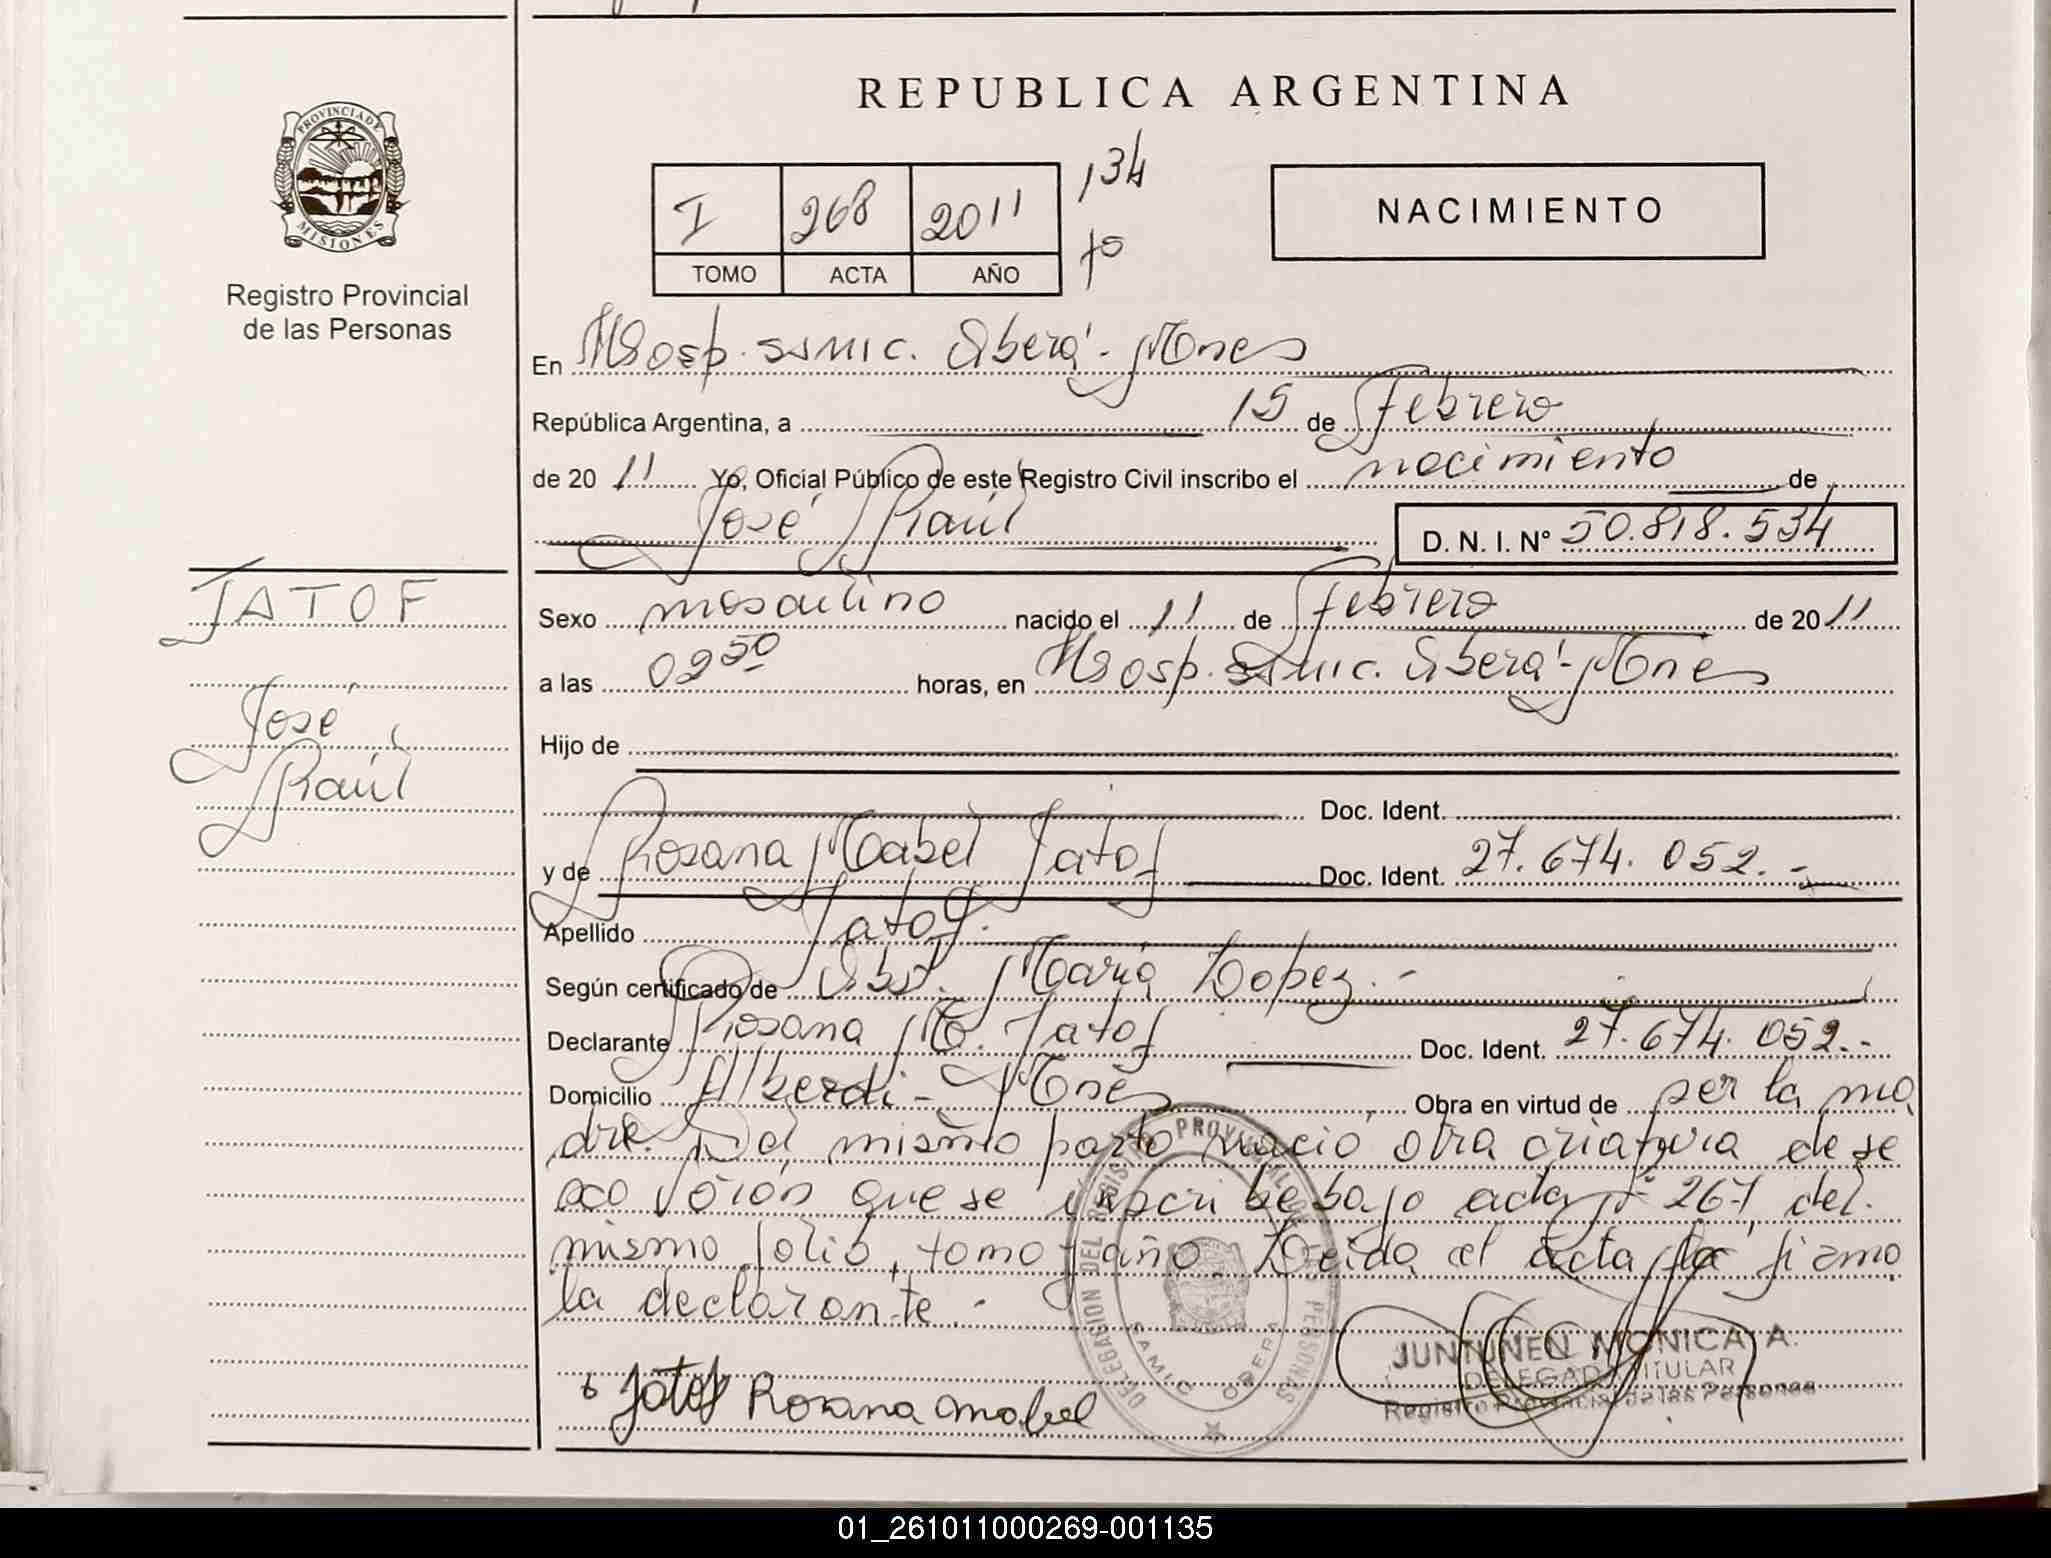 REPUBLICA ARGENTINA
PROVINCIA DE
MISIONES
Registro Provincial
de las Personas
I 268 2011 134
TOMO ACTA AÑO fº
NACIMIENTO
En Hosp. SAMIC. Oberá - Mnes
República Argentina, a 15 de Febrero
de 20 11 Yo, Oficial Público de este Registro Civil inscribo el nacimiento de
José Raúl D. N. I. Nº 50.818.534
JATOF
José
Raúl
Sexo masculino nacido el 11 de Febrero de 20 11
a las 02 50 horas, en Hosp. SAMIC. Oberá - Mnes
Hijo de
Doc. Ident.
y de Rosana Mabel Jatof Doc. Ident. 27.674.052.-
Apellido Jatof.
Según certificado de Obst. María Lopez.-
Declarante Rosana M. Jatof Doc. Ident. 27.674.052.-
Domicilio Alberdi - Mnes Obra en virtud de ser la ma
dre. Del mismo parto nació otra criatura de se
xo que se inscribe bajo acta nº 267, del
mismo folio, tomo y año. Leida el acta la firma
la declarante.-
Jatof Rosana Mabel
DELEGACION DEL REGISTRO PROVINCIAL DE LAS PERSONAS
SAMIC OBERA
JUNTUNEN MONICA A.
DELEGADA TITULAR
Registro Provincial de las Personas
01_261011000269-001135